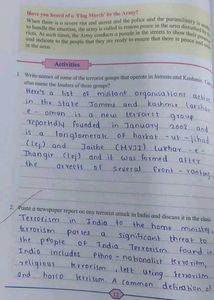 Have you heard of a 'Flag March' by the Army?
When there is a severe riot and unrest and the police and the paramilitary is unable
to handle the situation, the army is called to restore peace in the area disturbed by
riots. At such times, the Army conducts a parade in the streets to show their
and indicate to the people that they are ready to ensure that there is peace and
in the area.
Activities
1. Write names of some of the terrorist groups that operate in Jammu and Kashmir. Can
also name the leaders of these groups?
Here's a list of militant organisations active
in the state Jammu and kashmir lashkar
e - omar is a new terrorist group
reportedly founded in January 2002 and
is a conglomerate of harkat - ul - jihad
(lej) and Jaithe (MVJI) Lashkar - e -
Jhangir (lej) and it was formed after
the arrests of several front - ranking
2. Paste a newspaper report on any terrorist attack in India and discuss it in the class.
Terrorism in India to the home ministry
terrorism poses a significant threat to
the people of India Terrorism found in
India includes ethno - nationalist terrorism,
religious terrorism, left wing terrorism
and narco terrorism. A common definition of